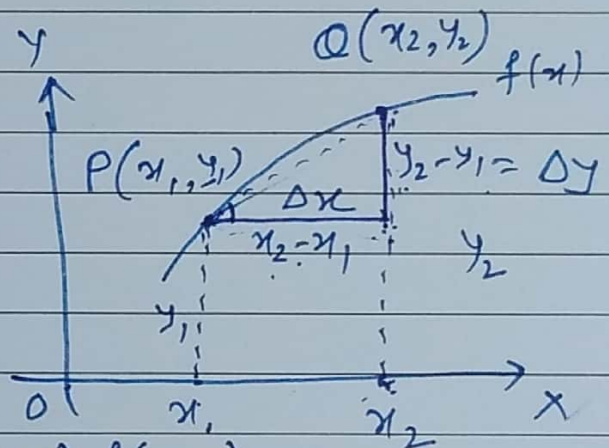 Y
Q(x2,y2)
f(x)
P(x1,y1)
y2-y1= Δy
Δx
x2-x1
y2
y1
O
x1
x2
X